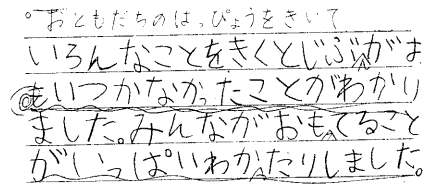 。おともだちのはっぴょうをきいて
いろんなことをきくとじぶがお
もいつかなかったことがわかり
ました。みんながおもてること
がいっぱいわかたりしました。